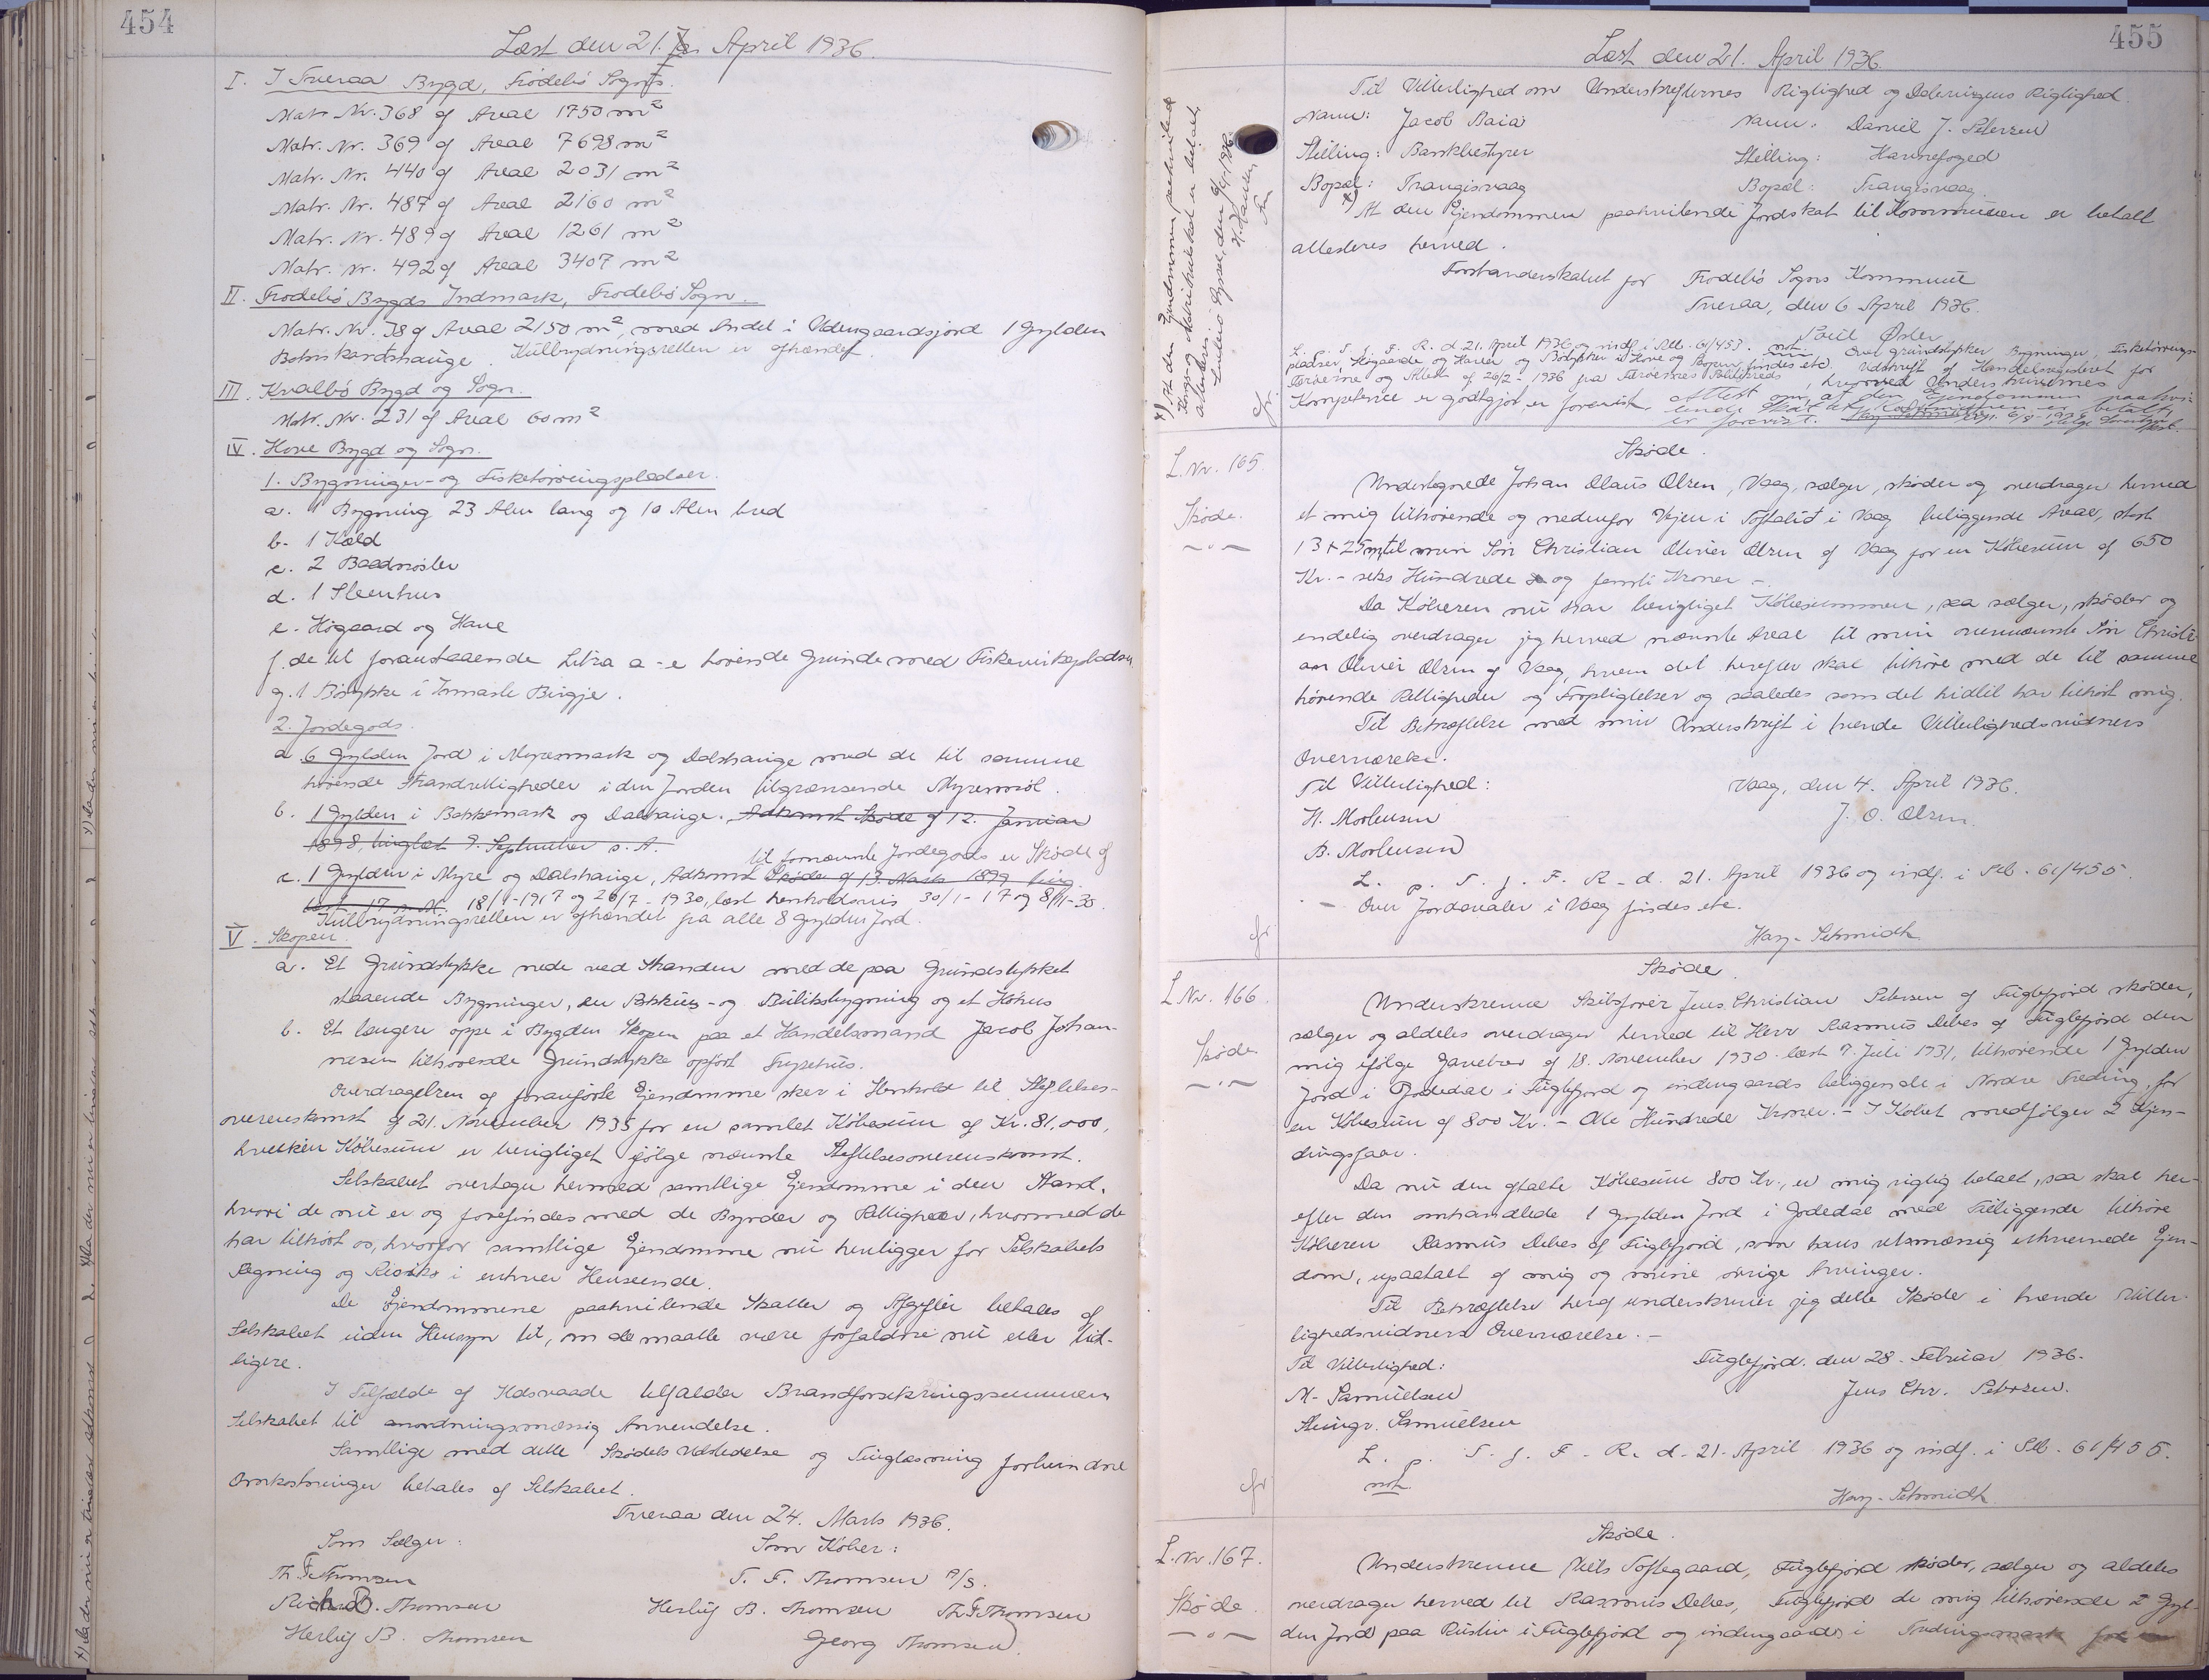 454
Læst den 21. April 1936.
I. I Tveraa Bygd, Frodebö Sogn.
Matr. Nr. 368 af Areal 1750 m²
Matr. Nr. 369 af Areal 7698 m²
Matr. Nr. 440 af Areal 2031 m²
Matr. Nr. 487 af Areal 2160 m²
Matr. Nr. 489 af Areal 1261 m²
Matr. Nr. 492 af Areal 3407 m²
II. Frodebö Bygds Indmark, Frodebö Sogn.
Matr. Nr. 38 af Areal 2150 m², med Andel i Udengaardsjord 1 Gylden
Kulbrydningsretten er afhændet
III. Kvalbö Bygd og Sogn.
Matr. Nr. 231 af Areal 60 m²
IV. Hove Bygd og Sogn.
1. Bygninger- og Fisketörringspladser.
a. 1 Bygning 23 Alen lang og 10 Alen bred
b. 1 Kæld
c. 2 Baadnöster
d. 1 Steenhus
e. Högaard og Have
f. de til foranstaaende Litra a-e hörende Grunde med Fiskevirkepladser
g. 1 Böstykke i Birgje.
2. Jordegods.
a. 6 Gylden Jord i Myremark og Dalshauge med de til samme
hörende Strandrettigheder i den Jorden tilgrænsende Myrenöl.
b. 1 Gylden i Bakkemark og Dalshauge. Adkomst Skøde af 12. Januar
1898, tinglæst 9. September s. A.
til fornævnte Jordegods er Skøde af
c. 1 Gylden i Myre og Dalshauge, Adkomst Skøde af 13. Marts 1899 ting-
læst 17. 18/1-1917 og 26/7-1930, læst henholdsvis 30/1-17 og 8/11-30.
Kulbrydningsretten er afhændet fra alle 8 Gylden Jord.
V. Skopen.
a. Et Grundstykke nede ved Stranden med de paa Grundstykket
staaende Bygninger, en Pakhus- og Butiksbygning og et Hus
b. Et længere oppe i Bygden Skopen paa et Handelsmand Jacob Johan-
nesen tilhørende Grundstykke opfört Frysehus.
Overdragelsen af foranførte Ejendomme sker i Henhold til Stiftelses-
overenskomst af 21. November 1935 for en samlet Köbesum af Kr. 81,000,
hvilken Köbesum er berigtiget ifölge nævnte Stiftelsesoverenskomst.
Selskabet overtager hermed samtlige Ejendomme i den Stand,
hvori de nu er og forefindes med de Byrder og Rettigheder, hvormed de
har tilhört os, hvorfor samtlige Ejendomme nu henligger for Selskabets
Regning og Risiko i enhver Henseende.
De Ejendommene paahvilende Skatter og Afgifter betales af
Selskabet uden Hensyn til, om de maatte være forfaldne nu eller tid-
ligere.
I Tilfælde af Ildsvaade tilfalder Brandforsikringssummen
Selskabet til anordningsmæssig Anvendelse.
Samtlige med dette Skødes Udstedelse og Tinglæsning forbundne
Omkostninger betales af Selskabet.
Tveraa den 24. Marts 1936.
Som Sælger: Som Köber:
Th. F. Thomsen T. F. Thomsen A/S.
Richard B. Thomsen Herluf B. Thomsen Th F Thomsen
Herluf B. Thomsen Georg Thomsen
455
Læst den 21. April 1936.
Til Vitterlighed om Underskrifternes Rigtighed og Dateringens Rigtighed.
Navn: Jacob Baia Navn: Daniel J. Petersen
Stilling: Bankbestyrer Stilling: Havnefoged
Bopæl: Trangisvaag Bopæl: Trangisvaag.
x) At den Ejendommen paahvilende Jordskat til Kommunen er betalt
attesteres herved.
Forstanderskabet for Frodebö Sogns Kommune
Tveraa, den 6 April 1936.
Poul
x) At den Ejendommen paahvilende
Kongs og Matrikulskat er betalt,
attesteres
L. p. T. f. F. R. d. 21. April 1936 og indf. i Slb. 61/453. not. Over Grundstykker, Bygninger, Fisketörrings-
pladser, Högaarde og Haver og Böstykker i Hove og Skopen findes etc. Udskrift af Handelsregisteret for
Færøerne og Attest af 26/2-1936 fra Færøernes Politikreds, hvorved Underskrivernes
Kompetence er godtgjort, er forevist. Attest om, at den Ejendommen paahvi-
lende Skat til Kommunen er betalt,
er forevist.
L. Nr. 165.
Skøde.
Skøde.
Undertegnede Johan Olaus Olsen, Vaag, sælger, skøder og overdrager herved
et mig tilhørende og nedenfor Vejen i Toftalid i Vaag beliggende Areal, stort
13 x 25 m, til min Sön Christian Olivur Olsen af Vaag for en Købesum af 650
Kr. - seks Hundrede og femti Kroner -.
Da Köberen nu har berigtiget Köbesummen, saa sælger, skøder og
endelig overdrager jeg herved nævnte Areal til min ovennævnte Sön Christi-
an Olivur Olsen af Vaag, hvem det herefter skal tilhöre med de til samme
hörende Rettigheder og Forpligtelser og saaledes som det hidtil har tilhört mig.
Til Bekræftelse med min Underskrift i tvende Vitterlighedsvidners
Overværelse.
Til Vitterlighed: Vaag, den 4. April 1936.
H. Mortensen J. O. Olsen.
B. Mortensen
L. p. T. f. F. R. d. 21. April 1936 og indf. i Slb. 61/455.
Over Jordarealer i Vaag findes etc.
Hary. Schmidt
L. Nr. 166.
Skøde
Skøde.
Underskrevne Skibsförer Jens Christian Petersen af Fuglefjord skøder,
sælger og aldeles overdrager herved til Herr Rasmus Debes af Fuglefjord den
mig ifölge Gavebrev af 18. November 1930 læst 9. Juli 1931, tilhørende 1 Gylden
Jord i Godedal i Fuglefjord og indengaards beliggende i Nordre Treding, for
en Köbesum af 800 Kr. - Otte Hundrede Kroner. - I Köbet medfölger 2 Skjen-
dingsfaar.
Da nu den aftalte Köbesum 800 Kr., er mig rigtig betalt, saa skal her-
efter den omhandlede 1 Gylden Jord i Godedal med Tilliggende tilhöre
Köberen Rasmus Debes af Fuglefjord, som hans retsmæssig erhvervede Ejen-
dom, upaatalt af mig og mine øvrige Arvinger.
Til Bekræftelse heraf underskriver jeg dette Skøde i tvende Vitter-
lighedsvidners Overværelse. -
Til Vitterlighed: Fuglefjord. den 28. Februar 1936.
M. Samuelsen Jens Chr. Petersen.
Steingr. Samuelsen
L. p. T. f. F. R. d. 21. April 1936 og indf. i Slb. 61/455.
not.
Hary. Schmidt
L. Nr. 167.
Skøde.
Skøde.
Underskrevne Niels Toftegaard, Fuglefjord skøder, sælger og aldeles
overdrager herved til Rasmus Debes, Fuglefjord de mig tilhørende 2 Gyl-
den Jord paa i Fuglefjord og indengaards i Tredingsmark